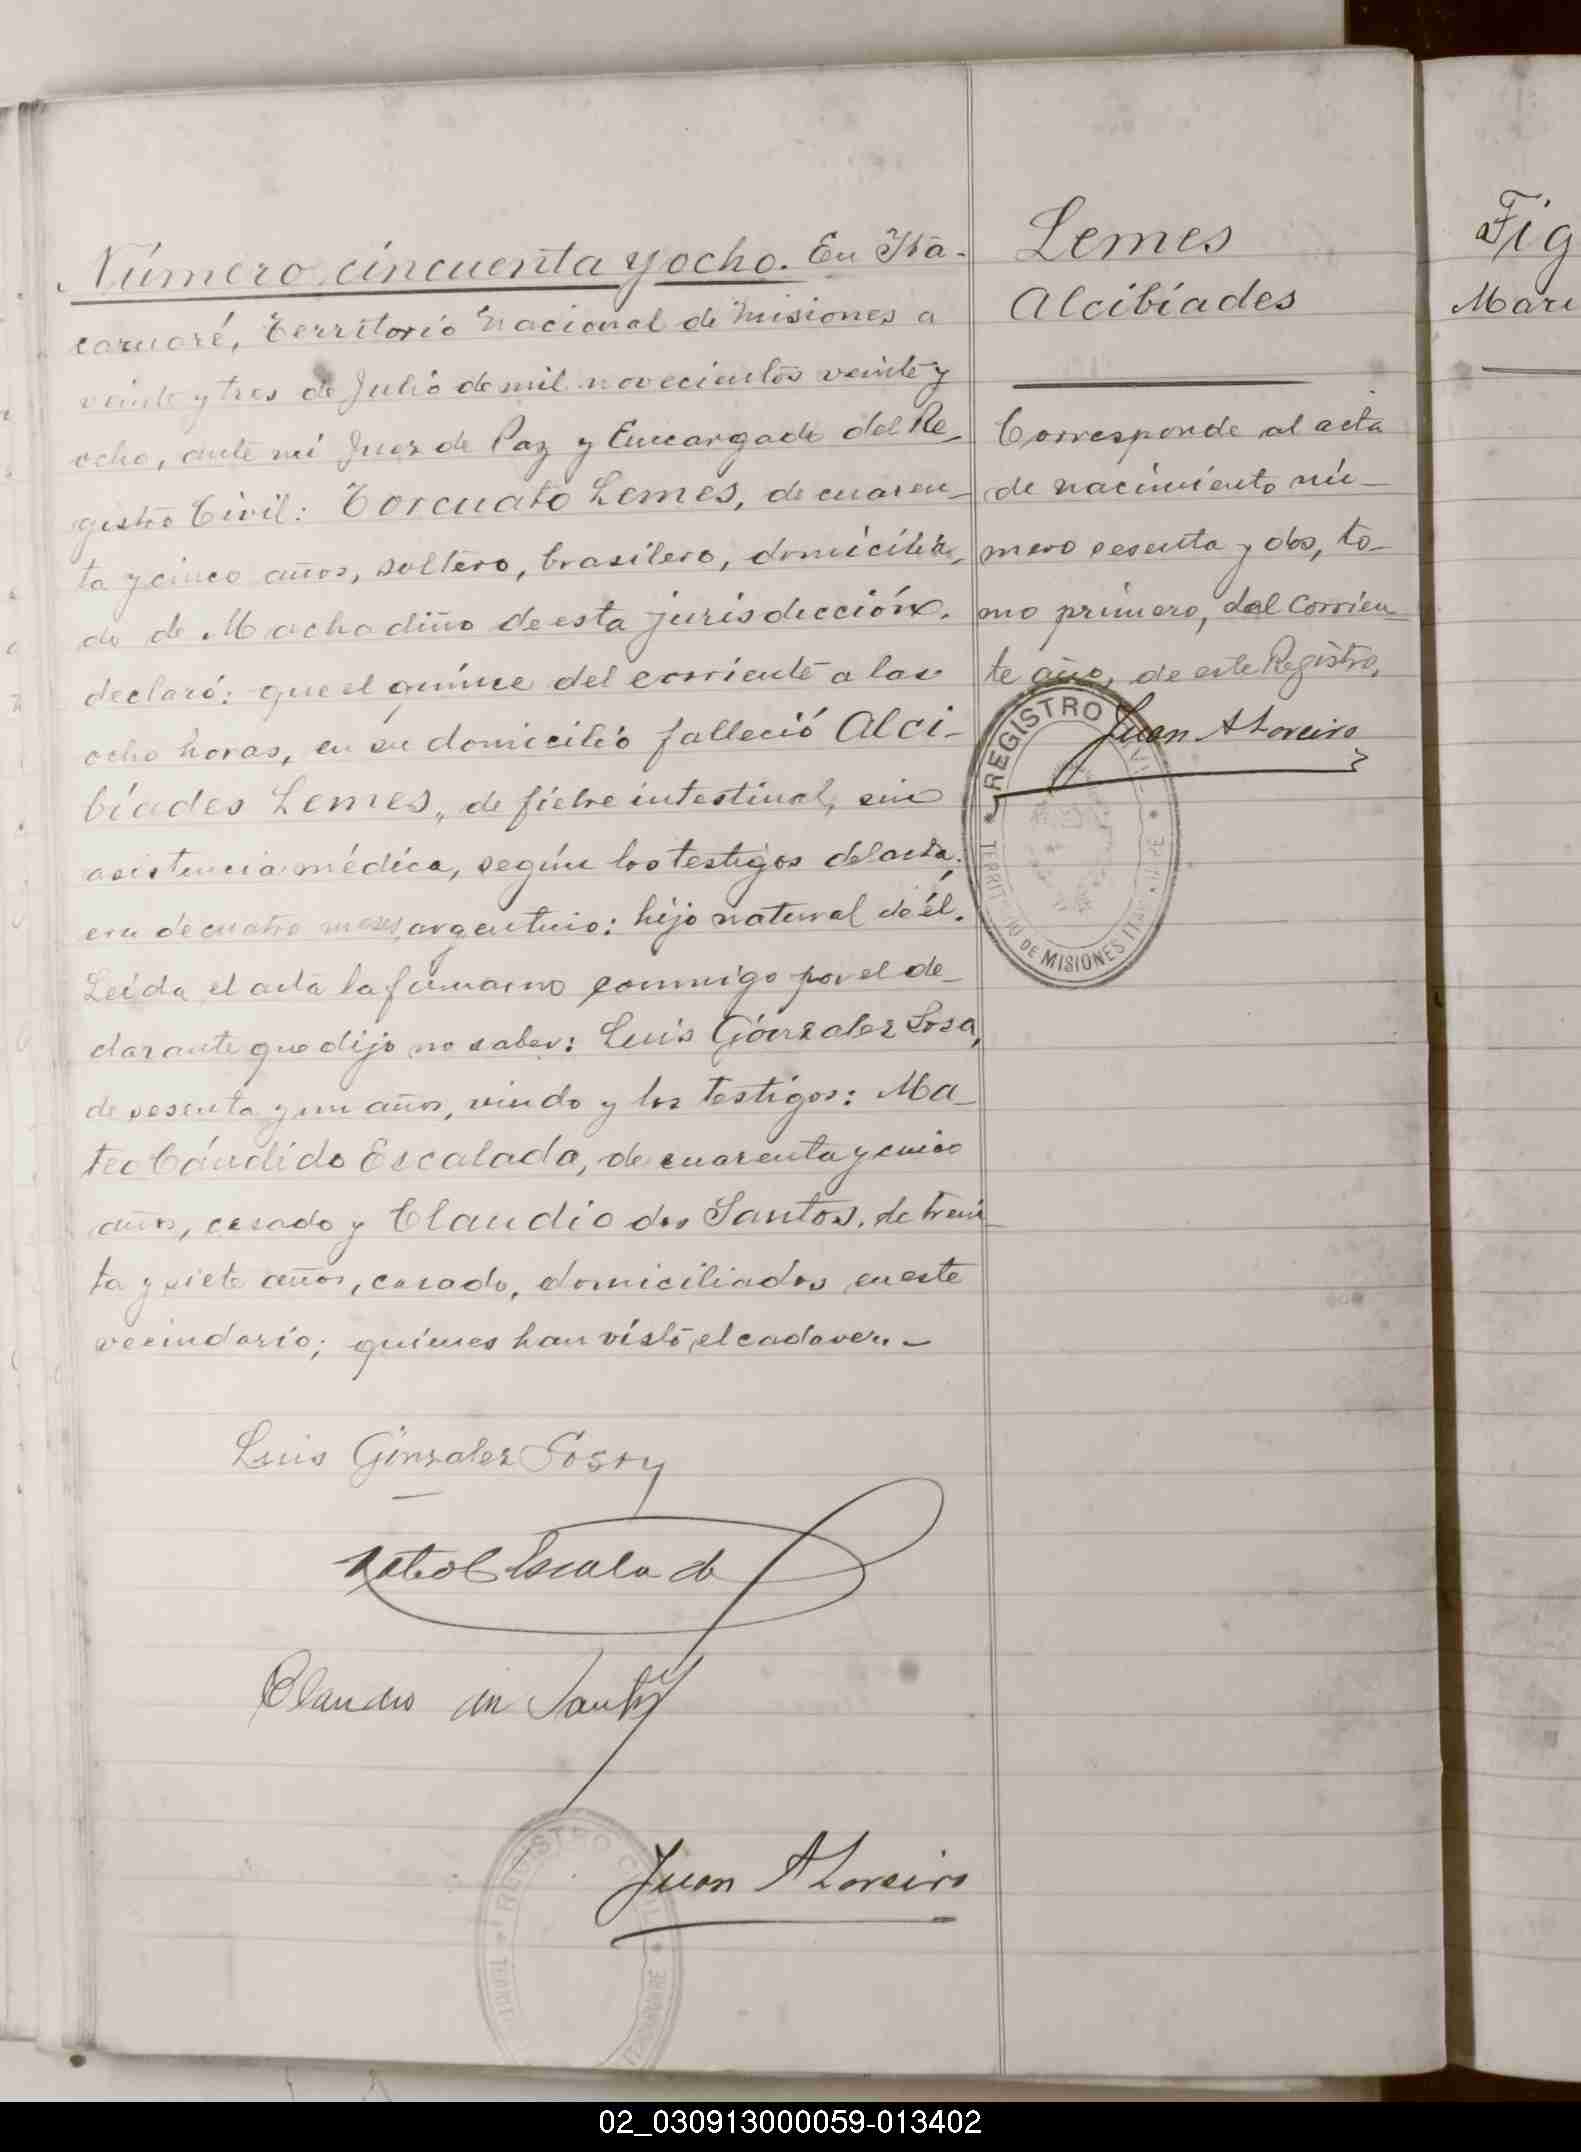 Número cincuenta y ocho. En Ita-
caruaré, Territorio Nacional de Misiones a
veinte y tres de Julio de mil novecientos veinte y
ocho, ante mí Juez de Paz y Encargado del Re-
gistro Civil: Torcuato Lemes, de cuaren-
ta y cinco años, soltero, brasilero, domicilia-
do de Machadiño de esta jurisdicción.
declaró: que el quince del corriente a las
ocho horas, en su domicilio falleció Alci-
bíades Lemes, de fiebre intestinal, sin
asistencia médica, según los testigos del acta;
era de cuatro meses, argentino: hijo natural de él.
Leída el acta la firmaron conmigo por el de-
clarante que dijo no saber: Luis Gónzalez Sosa,
de sesenta y un años, viudo y los testigos: Ma-
teo Cándido Escalada, de cuarenta y cinco
años, casado y Claudio dos Santos, de trein-
ta y siete años, casado, domiciliados en este
vecindario; quienes han visto el cadaver.-
Luis Gónzalez Sosa
Escalada
Claudio dos Santos
REGISTRO CIVIL
Juan A Loreiro
Lemes
Alcibíades
Corresponde al acta
de nacimiento nú-
mero sesenta y dos, to-
mo primero, del corrien-
te año, de este Registro.
Juan A Loreiro
REGISTRO CIVIL
TERRITORIO DE MISIONES
Fig
Mari
02_030913000059-013402